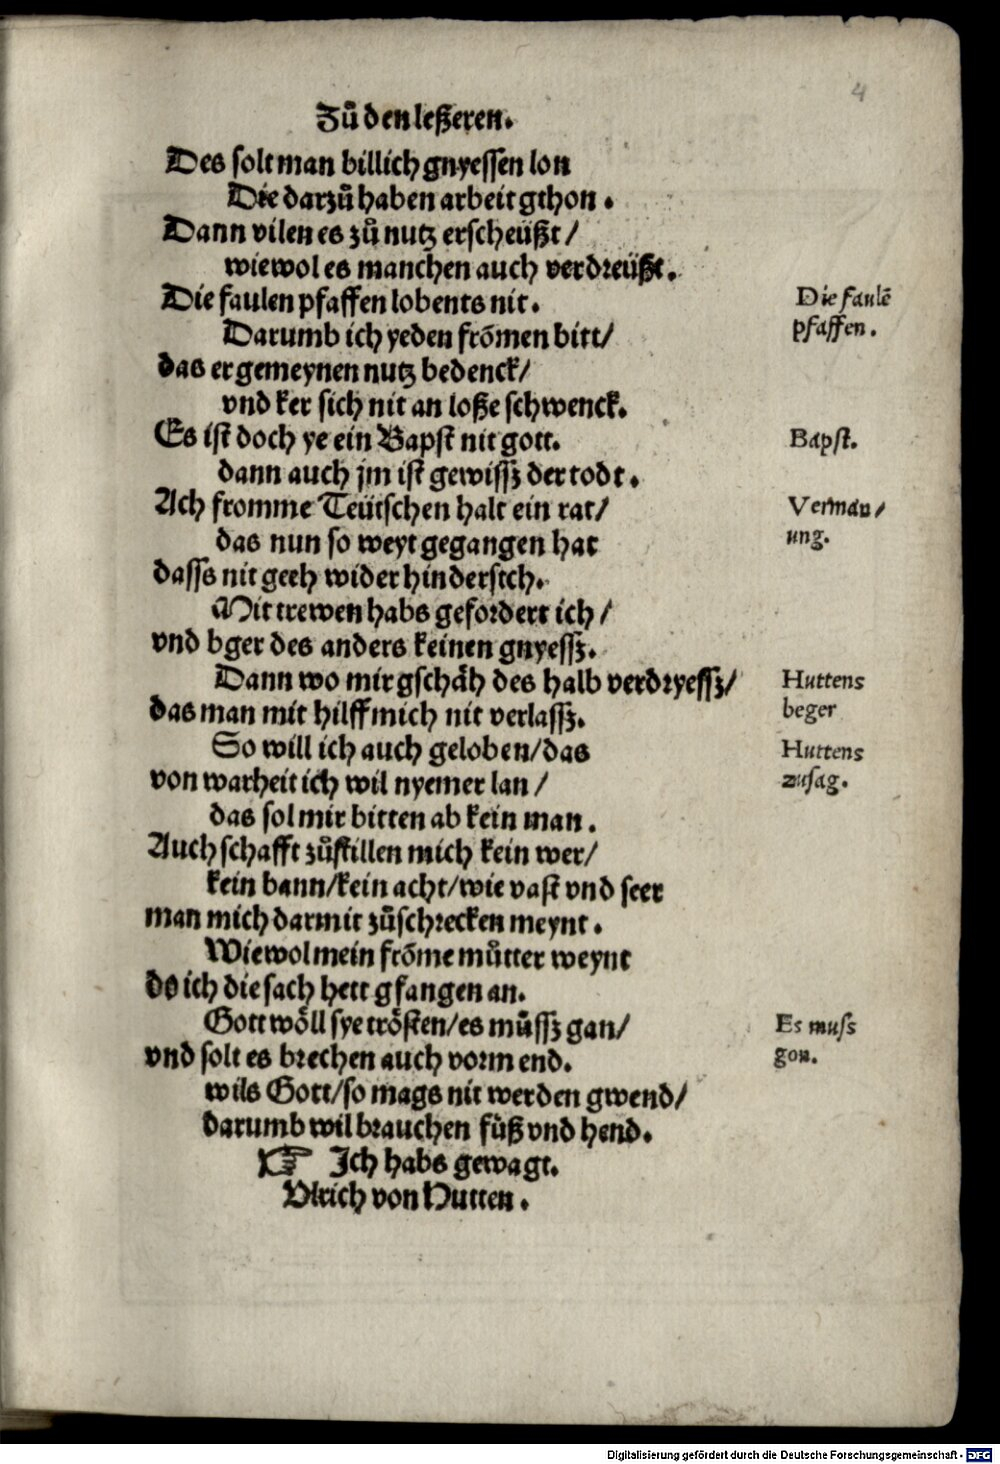 4
Zů den leßeren.
Des solt man billich gnyessen lon
Die darzů haben arbeit gthon.
Dann vilen es zů nutz erscheüßt/
wiewol es manchen auch verdreüßt.
Die faulen pfaffen lobents nit.
Die faulē
pfaffen.
Darumb ich yeden frõmen bitt/
das er gemeynen nutz bedenck/
vnd ker sich nit an loße schwenck.
Es ist doch ye ein Bapst nit gott.
Bapst.
dann auch jm ist gewissz der todt.
Ach fromme Teütschen halt ein rat/
Verman/
ung.
das nun so weyt gegangen hat
dasss nit geeh wider hindersich.
Mit trewen habs gefordert ich/
vnd bger des anders keinen gnyessz.
Dann wo mir gschäh des halb verdryessz/
Huttens
beger
das man mit hilff mich nit verlassz.
So will ich auch geloben/das
Huttens
zusag.
von warheit ich wil nyemer lan/
das sol mir bitten ab kein man.
Auch schafft zůstillen mich kein wer/
kein bann/kein acht/wie vast vnd seer
man mich darmit zůschrecken meynt.
Wiewol mein frõme můtter weynt
do ich die sach hett gfangen an.
Gott wöll sye trösten/es můssz gan/
Es muss
gon.
vnd solt es brechen auch vorm end.
wils Gott/so mags nit werden gwend/
darumb wil brauchen füß vnd hend.
☞ Ich habs gewagt.
Vlrich von Hutten.
Digitalisierung gefördert durch die Deutsche Forschungsgemeinschaft - DFG